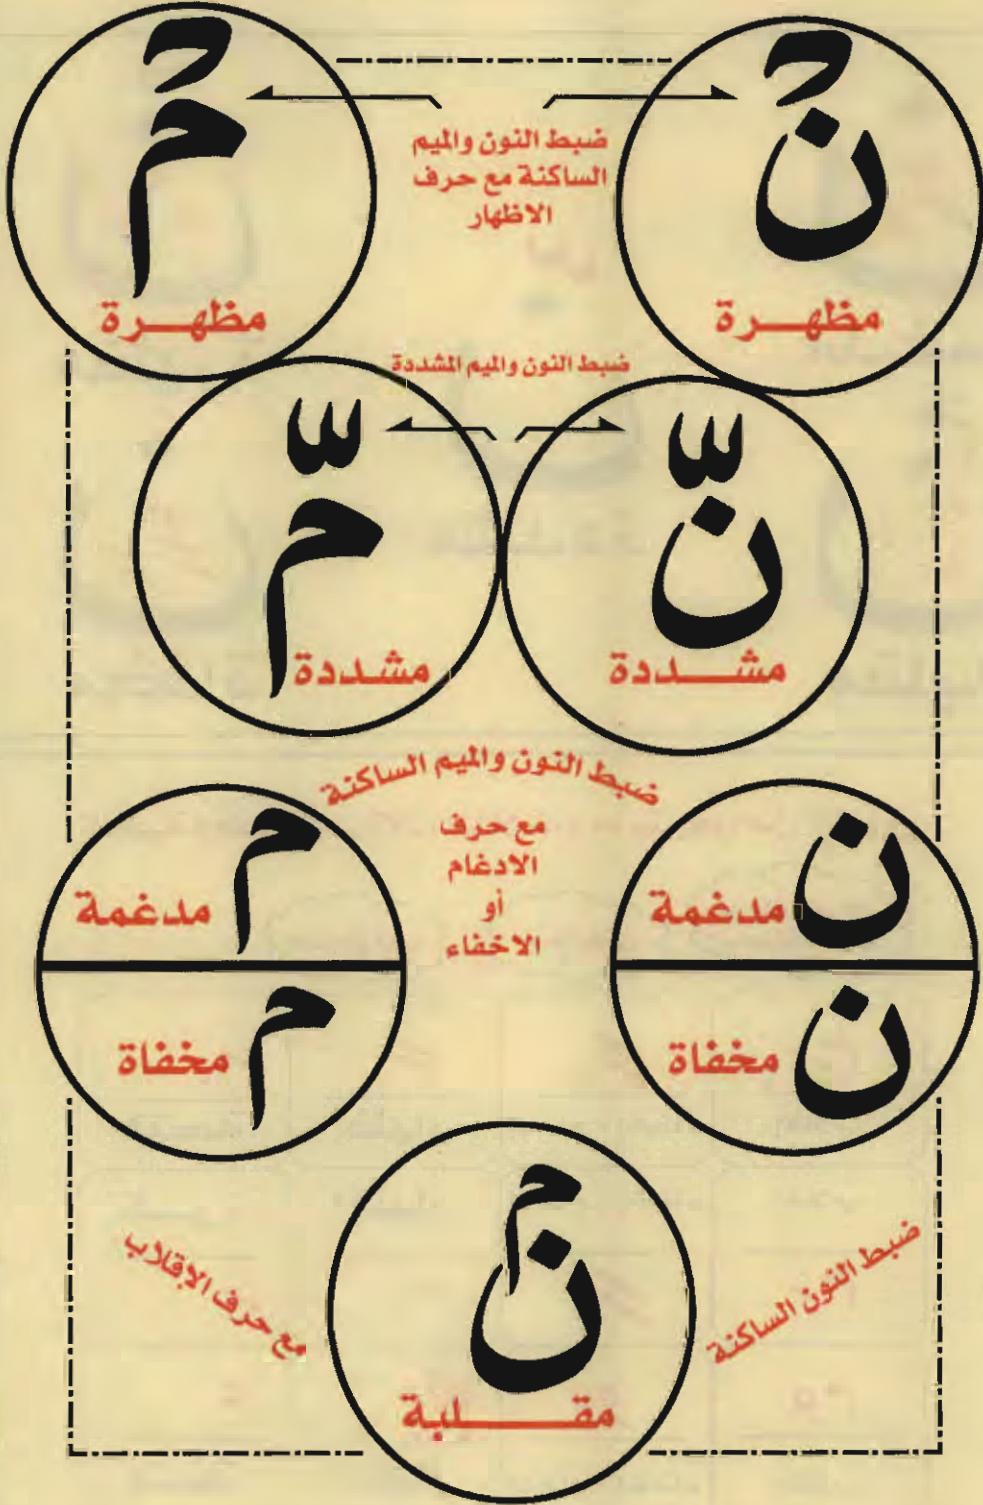 نْ
مْ
ضبط النون والميم
الساكنة مع حرف
الاظهار
مظهـــرة
مظهـــرة
ضبط النون والميم المشددة
نّ
مّ
مشـــددة
مشـددة
ضبط النون والميم الساكنة
مع حرف
الادغام
أو
الاخفاء
ن مدغمة
م مدغمة
ن مخفاة
م مخفاة
ضبط النون الساكنة
مع حرف الإقلاب
نۢ
مقـــــلبة